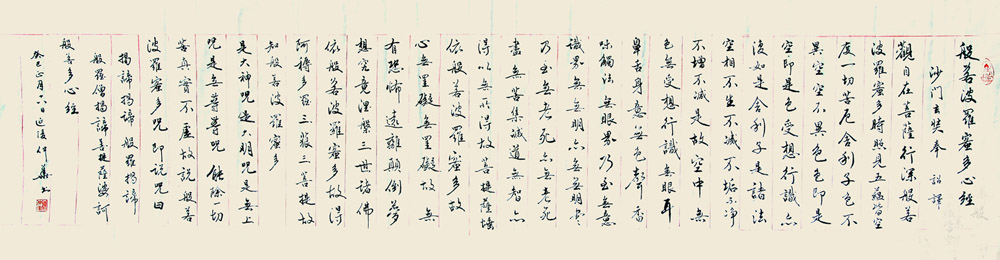 般若波羅蜜多心經
沙门玄奘奉 詔譯
觀自在菩薩行深般若
波羅蜜多時照見五蘊皆空
度一切苦厄舍利子色不
異空空不異色色即是
空空即是色受想行識亦
復如是舍利子是諸法
空相不生不滅不垢不净
不增不減是故空中無
色無受想行識無眼耳
鼻舌身意無色聲香
味觸法無眼界乃至無意
識界無無明亦無無明盡
乃至無老死亦無老死
盡無苦集滅道無智亦
得以無所得故菩提薩埵
依般若波羅蜜多故
心無罣礙無罣礙故無
有恐怖遠離顛倒夢
想究竟涅槃三世諸佛
依般若波羅蜜多故得
阿耨多羅三藐三菩提故
知般若波羅蜜多
是大神咒是大明咒是無上
咒是無等等咒能除一切
苦真實不虛故說般若
波羅蜜多咒即說咒曰
揭諦揭諦般羅揭諦
般羅僧揭諦菩提薩婆訶
般若多心經
癸巳正月六日